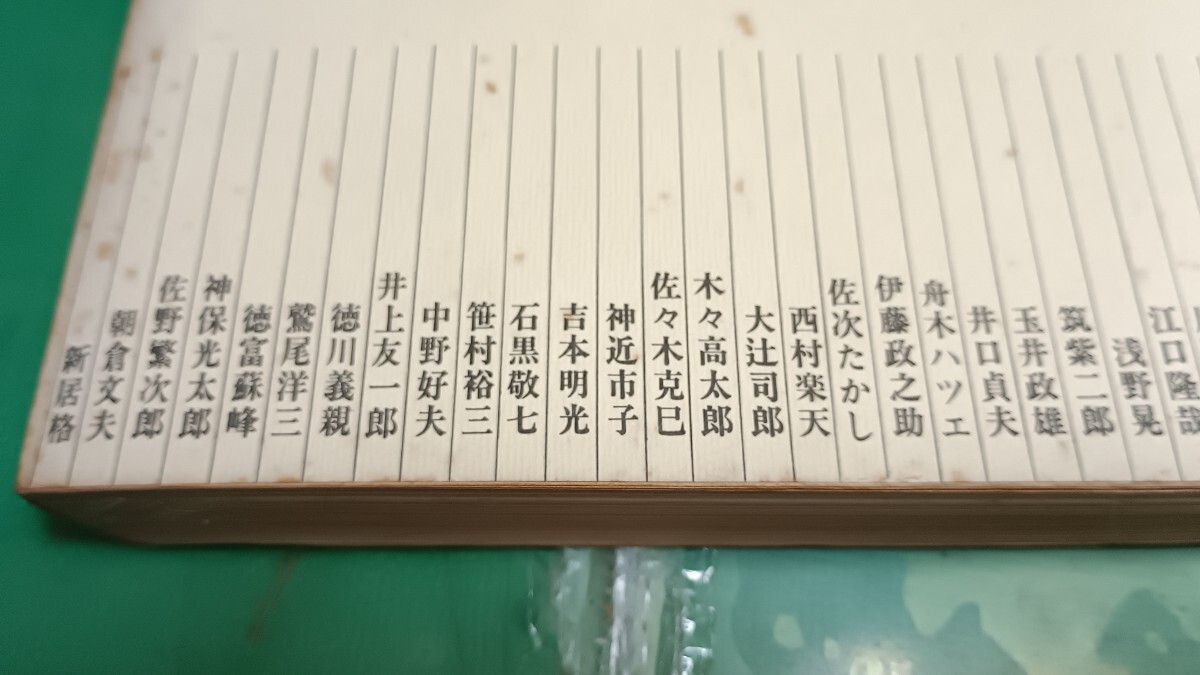 江口隆哉
浅野晃
筑紫二郎
玉井政雄
井口貞夫
舟木ハツエ
伊藤政之助
佐次たかし
西村楽天
大辻司郎
木々高太郎
佐々木克巳
神近市子
吉本明光
石黒敬七
笹村裕三
中野好夫
井上友一郎
徳川義親
鷲尾洋三
徳富蘇峰
神保光太郎
佐野繁次郎
朝倉文夫
新居格